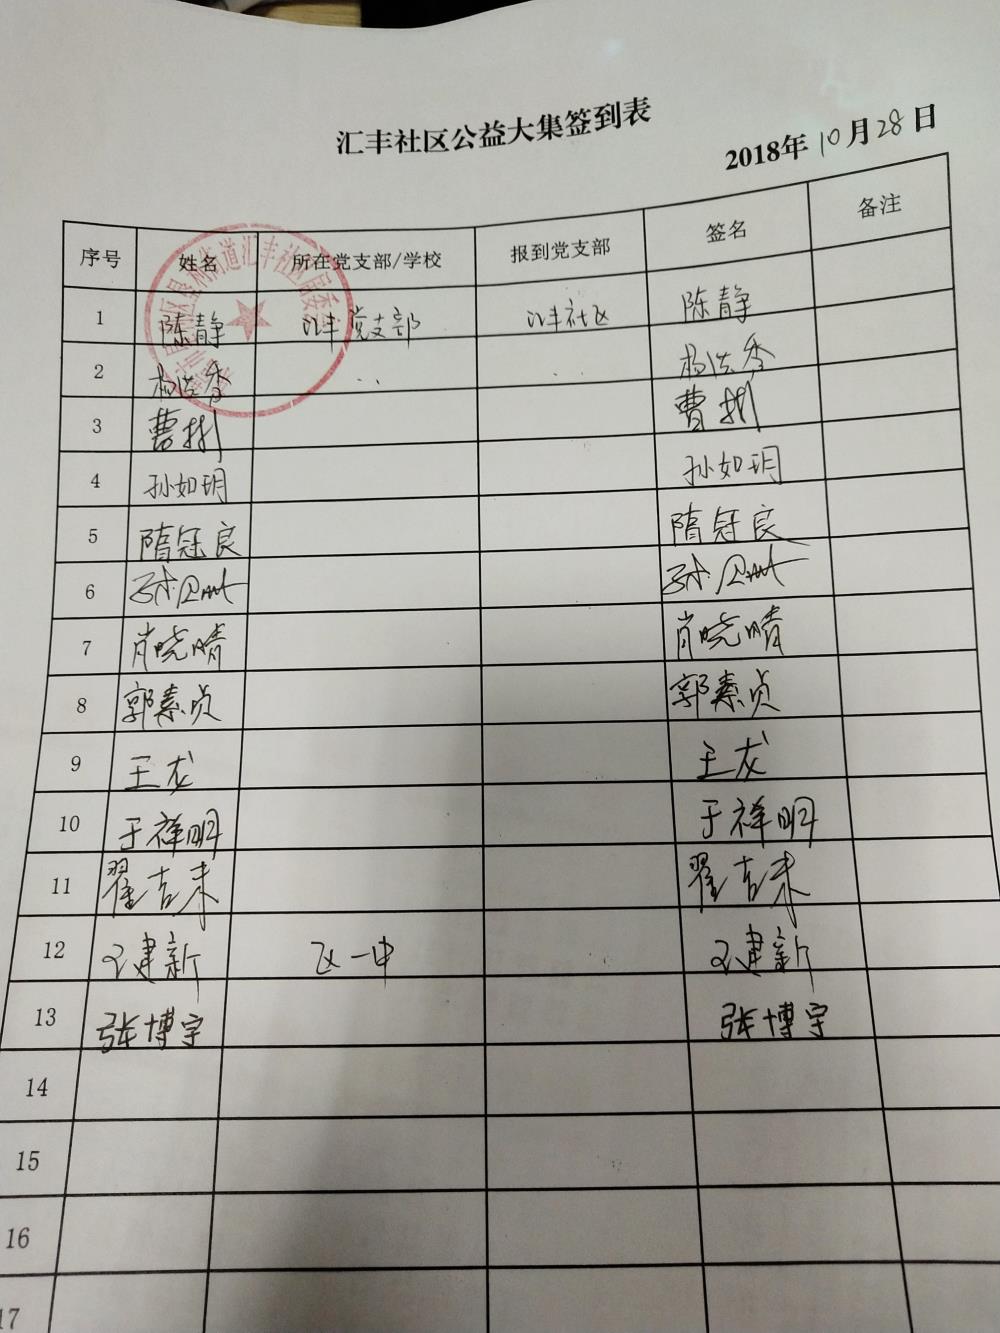 汇丰社区公益大集签到表
2018年10月28日
序号 姓名 所在党支部/学校 报到党支部 签名 备注
1 陈静 汇丰党支部 汇丰社区 陈静
2 杨洪秀 ‥ ‥ 杨洪秀
3 曹彬 曹彬
4 孙如玥 孙如玥
5 隋冠良 隋冠良
6
7 肖晓晴 肖晓晴
8 郭素贞 郭素贞
9 王龙 王龙
10 于祥明 于祥明
11 翟吉来 翟吉来
12 王建新 区一中 王建新
13 张博宇 张博宇
14
15
16
17